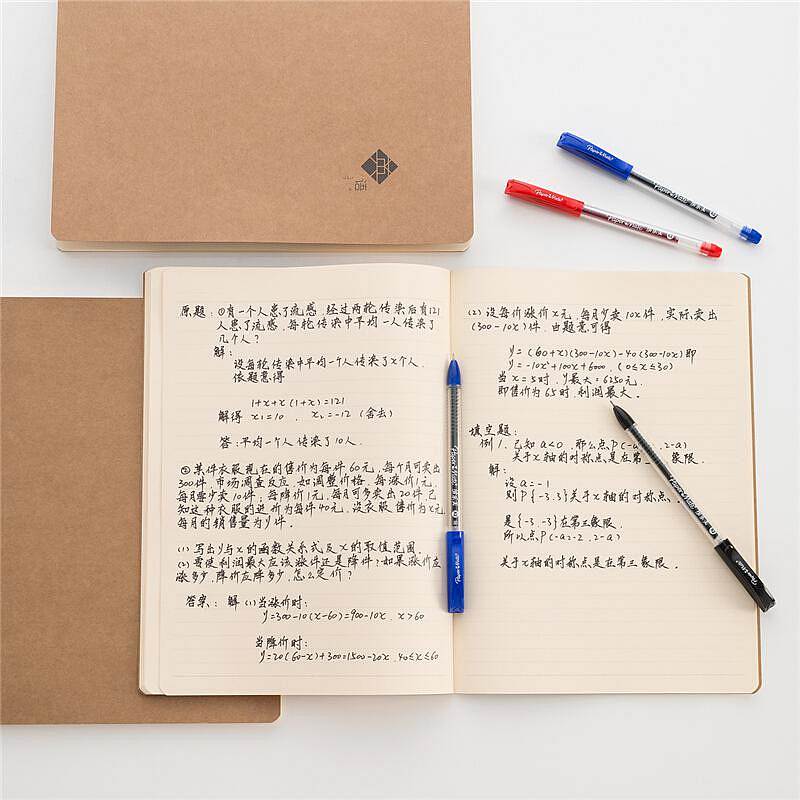 原题：①有一个人患了流感，经过两轮传染后有121
人患了流感，每轮传染中平均一人传染了
几个人？
解：
设每轮传染中平均一个人传染了x个人，
依题意得
1+x+x(1+x)=121
解得 x1=10 ， x2=-12 (舍去)
答：平均一个人传染了10人．
②某件衣服现在的售价为每件60元，每个月可卖出
300件，市场调查反应，如调整价格，每涨价1元，
每月要少卖10件；每降价1元，每月可多卖出20件，已
知这种衣服的进价为每件40元，设衣服售价为x元，
每月的销售量为y件．
(1) 写出y与x的函数关系式及x的取值范围．
(2) 要使利润最大应该涨件还是降件？如果涨价应
涨多少，降价应降多少，怎么定价？
答案：解 (1)当涨价时：
y=300-10(x-60)=900-10x． x>60
当降价时：
y=20(60-x)+300=1500-20x 40≤x≤60
(2) 设每价涨价x元，每月少卖10x件，实际卖出
(300-10x)件，由题意可得
y=(60+x)(300-10x)-40(300-10x)即
y=-10x²+100x+6000 (0≤x≤30)
当x=5时，y最大=6250元．
即售价为65时，利润最大．
填空题：
例1．已知a<0，那么点P(-a ，2-a)
关于x轴的对称点是在第 象限．
解：
设a=-1
则P{-3.3}关于x轴的对称点．
是{-3.-3}在第三象限．
所以点P(-a=2，2-a)
关于x轴的对称点是在第三象限．
PaperMate
PaperMate
PaperMate
PaperMate
PaperMate
PaperMate